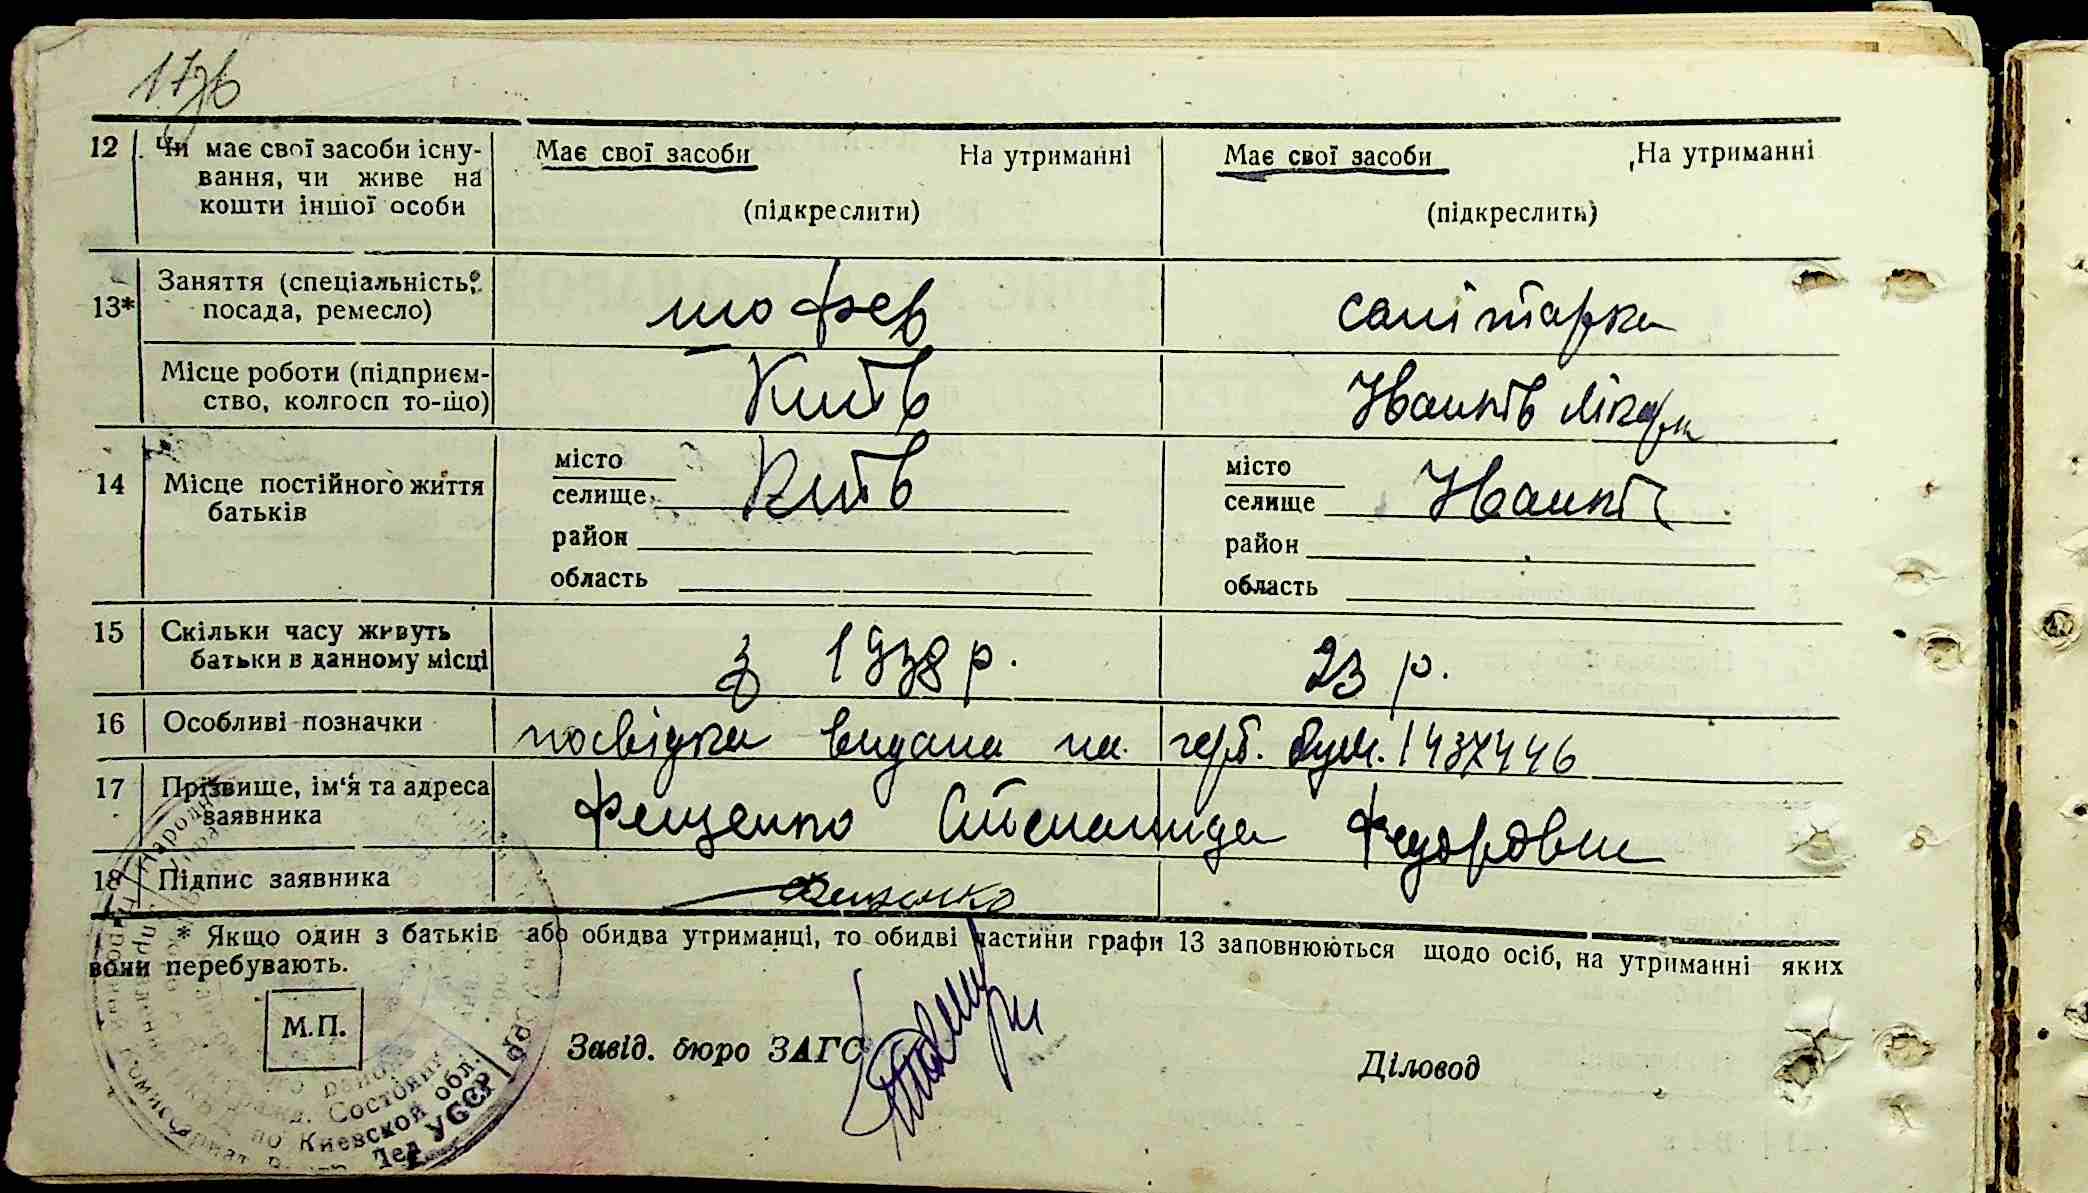 17зв
12 Чи має свої засоби існу- Має свої засоби На утриманні Має свої засоби На утриманні
вання, чи живе на
кошти іншої особи (підкреслити) (підкреслить)
13* Заняття (спеціальність, шофер санітарка
посада, ремесло)
Місце роботи (підприєм- Київ Іванків лікарн
ство, колгосп то-що)
14 Місце постійного життя місто Київ місто Іванків
батьків селище селище
район район
область область
15 Скільки часу живуть з 1938 р. 23 р.
батьки в данному місці
16 Особливі позначки посвідка видана на герб. бум. 1437446
17 Прізвище, ім'я та адреса Фещенко Степанида Федоровн
заявника
18 Підпис заявника Фещенко
* Якщо один з батьків або обидва утриманці, то обидві частини графи 13 заповнюються щодо осіб, на утриманні яких
вони перебувають.
М.П.
Завід. бюро ЗАГС Діловод
Гражд. Состояния
по Киевской обл.
Дел УССР